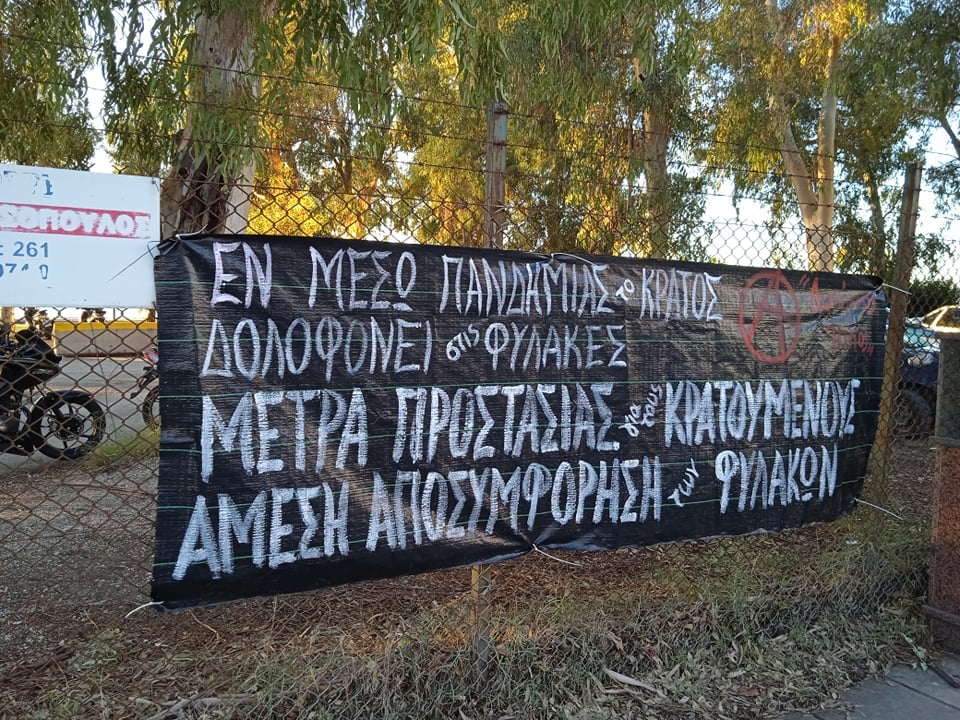 ΣΟΠΟΥΛΟΣ
: 261
ΕΝ ΜΕΣΩ ΠΑΝΔΗΜΙΑΣ το ΚΡΑΤΟΣ
ΔΟΛΟΦΟΝΕΙ στις ΦΥΛΑΚΕΣ
ΜΕΤΡΑ ΠΡΟΣΤΑΣΙΑΣ για τους ΚΡΑΤΟΥΜΕΝΟΥΣ
ΑΜΕΣΗ ΑΠΟΣΥΜΦΟΡΗΣΗ των ΦΥΛΑΚΩΝ